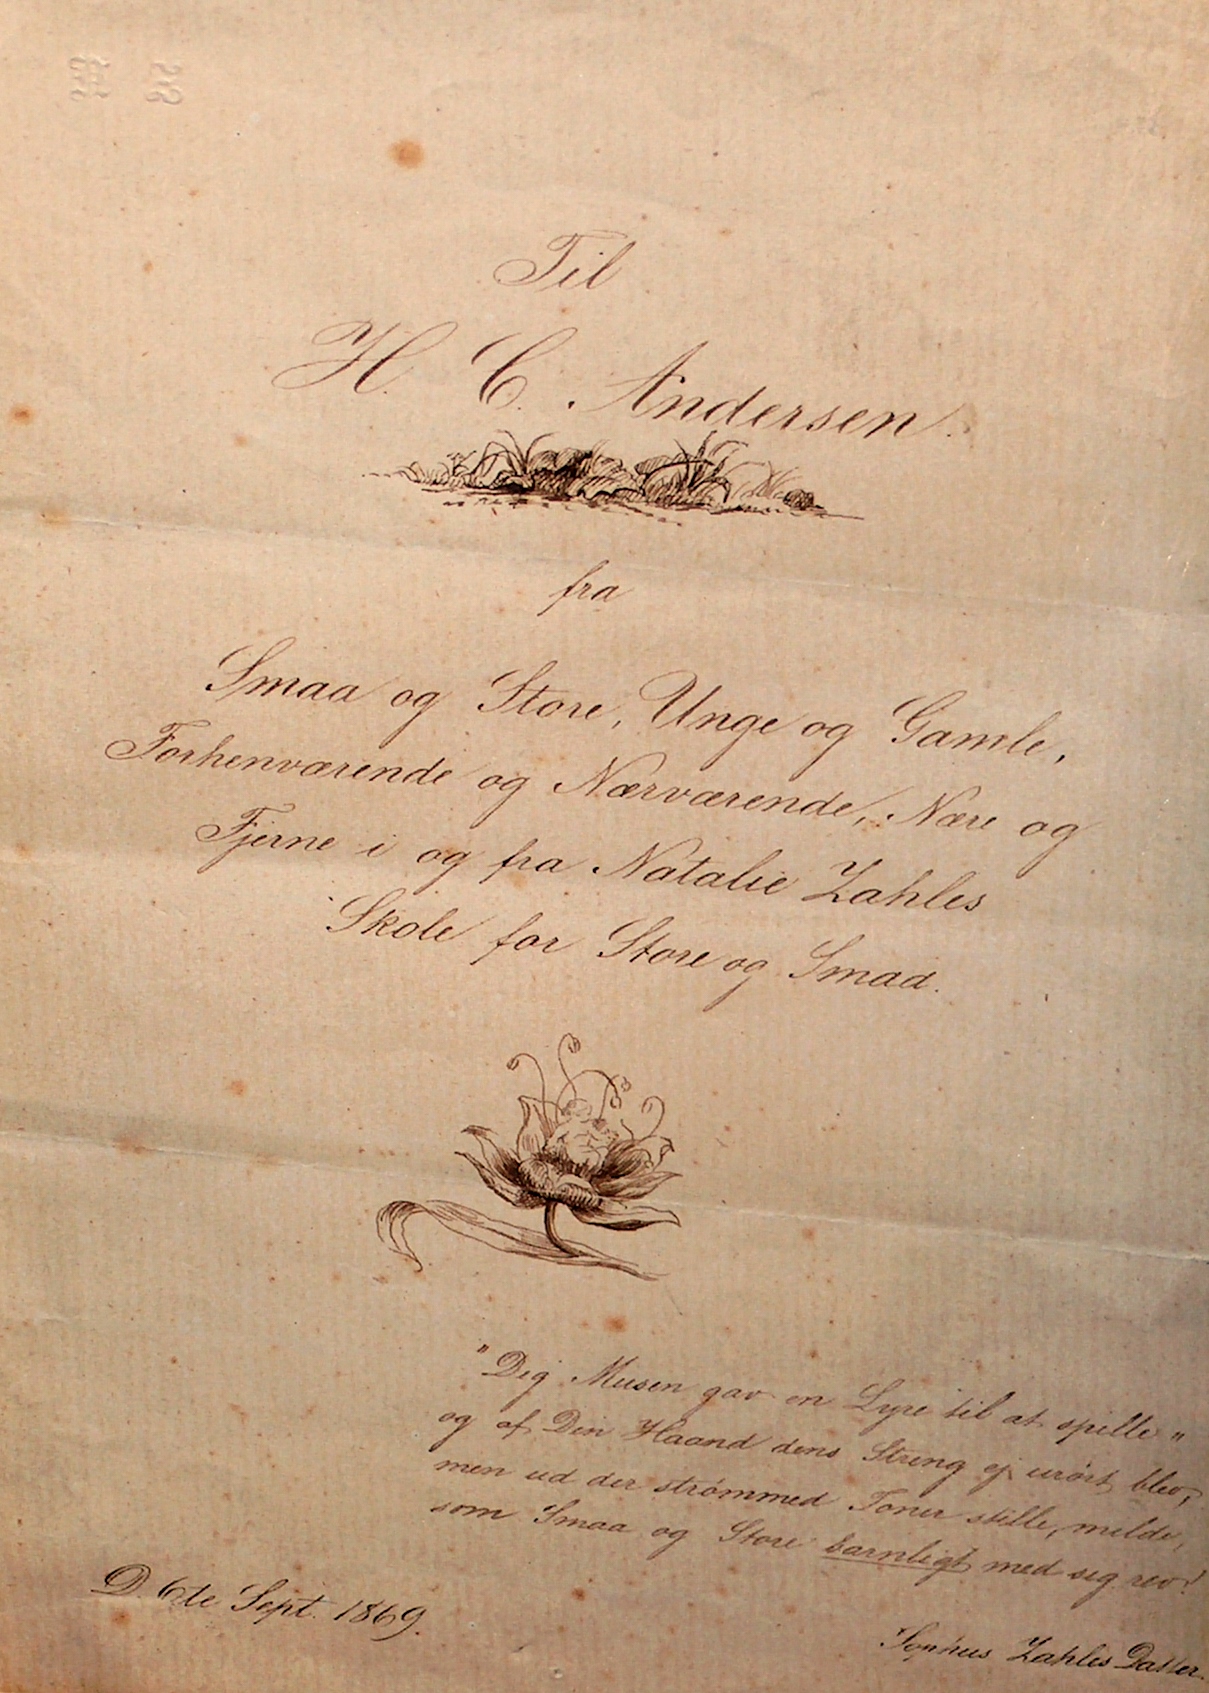 Til
H. C. Andersen.
fra
Smaa og Store, Unge og Gamle,
Forhenværende og Nærværende, Nære og
Fjerne i og fra Natalie Zahles
Skole for Store og Smaa.
"Dig Musen gav en Lyre til at spille"
og af Din Haand dens Streng ej urört blev,
men ud der strømmed Toner stille, milde,
som Smaa og Store barnligt med sig rev!
D. 6te Sept. 1869.
Sophus Zahles Datter.